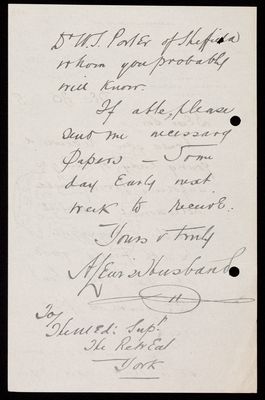 Dr W.S. Porter of Sheffield
whom you probably
will know.
If able, please
send me necessary
Papers — Some
day Early next
week to receive.
Yours v truly
Husband
To/
The Med: Supt.
The Retreat
York